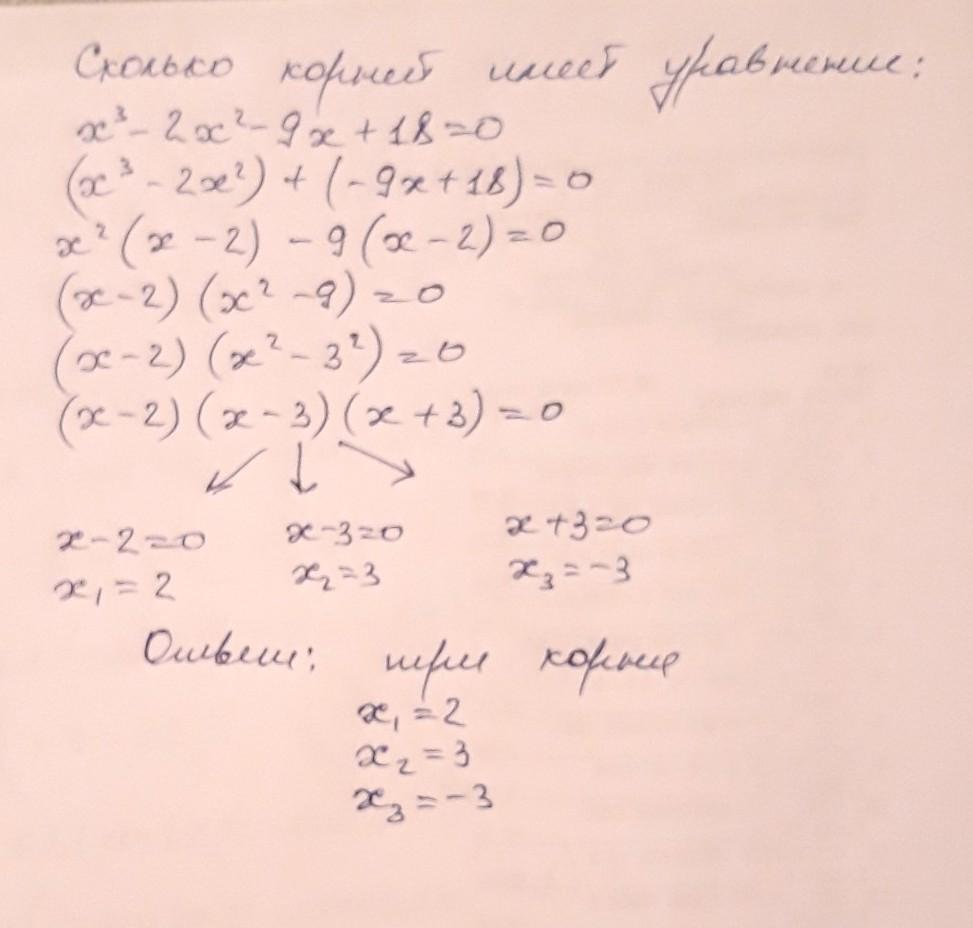 Сколько корней имеет уравнение:
x³ - 2x² - 9x + 18 = 0
(x³ - 2x²) + (-9x + 18) = 0
x² (x - 2) - 9 (x - 2) = 0
(x - 2) (x² - 9) = 0
(x - 2) (x² - 3²) = 0
(x - 2) (x - 3) (x + 3) = 0
x - 2 = 0 x - 3 = 0 x + 3 = 0
x₁ = 2 x₂ = 3 x₃ = -3
Ответ: три корня
x₁ = 2
x₂ = 3
x₃ = -3